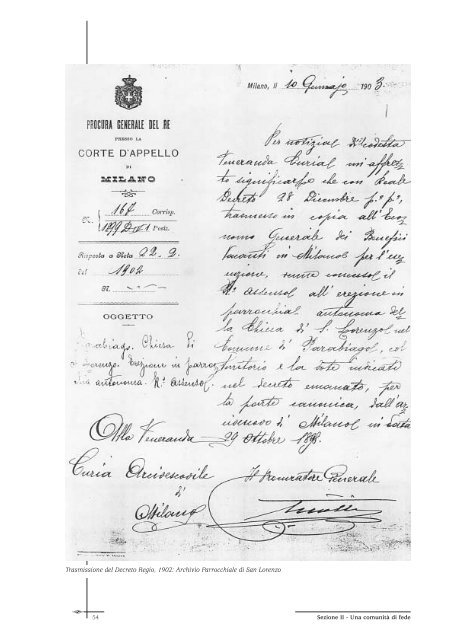 PROCURA GENERALE DEL RE
PRESSO LA
CORTE D'APPELLO
DI
MILANO
N. 167 Corrisp.
Posiz.
Risposta a Nota 22. 9.
del 1902
N.
OGGETTO
Parabiago. Chiesa di
S. Lorenzo. Erezione in parroc
chia autonoma. R.° assenso.
Milano, li 10 Gennajo 1903.
Per notizia di codesta
Veneranda Curia mi affret
to significare che con Reale
Decreto 28 Dicembre p.° p.°,
trasmesso in copia all'Eco
nomo Generale dei Benefici
Vacanti in Milano per l'ese
cuzione, venne concesso il
R.° assenso all'erezione in
parrocchia autonoma del
la Chiesa di S. Lorenzo nel
Comune di Parabiago, col
territorio e la dote indicati
nel decreto emanato, per
la parte canonica, dall'Ar
civescovo di Milano in data
29 Ottobre 1898.
Alla Veneranda
Curia Arcivescovile
di
Milano
Il Procuratore Generale
Trasmissione del Decreto Regio, 1902: Archivio Parrocchiale di San Lorenzo
54
Sezione II - Una comunità di fede